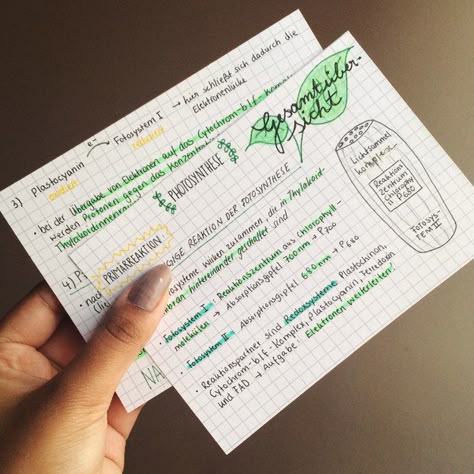 3) Plastocyanin e⁻ Fotosystem I → hier schließt sich dadurch die
oxidiert reduziert Elektronenlücke
• bei der Übergabe von Elektronen auf das Cytochrom-b/f-Komplex
werden Protonen gegen das
Thylakoidinnenraum
PHOTOSYNTHESE
PRIMÄRREAKTION
4)
• nach
NA
Gesamtüber-
sicht
GIGE REAKTION DER FOTOSYNTHESE
systeme wirken zusammen, die in Thylakoid-
bran hintereinander geschaltet sind
• Fotosystem I: Reaktionszentrum aus Chlorophyll-
molekülen → Absorptionsgipfel 700nm → P700
• Fotosystem II: Absorptionsgipfel 680nm → P680
• Reaktionspartner sind Redoxsysteme Plastochinon,
Cytochrom-b/f-Komplex, Plastocyanin, Ferredoxin
und FAD → Aufgabe: Elektronen weiterleiten!
Lichtsammel
komplex
Reaktions
zentrum
Chlorophyll
P680
Fotosys-
tem II